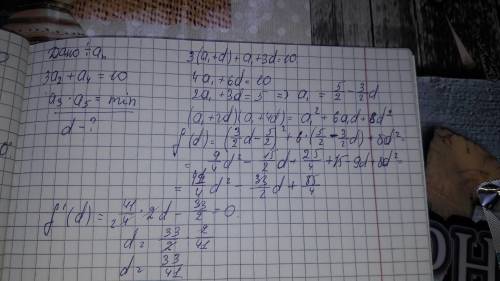 Дано: aₙ
3a₂ + a₄ = 10
a₃ · a₅ = min
d - ?
3(a₁+d) + a₁ + 3d = 10
4a₁ + 6d = 10
2a₁ + 3d = 5 ⇒ a₁ = 5/2 - 3/2 d
(a₁+2d)(a₁+4d) = a₁² + 6a₁d + 8d²
f(d) = (3/2 d - 5/2)² + 6 · (5/2 - 3/2 d) + 8d² =
= 9/4 d² - 15/2 d + 25/4 + 15 - 9d + 8d² =
= 41/4 d² - 33/2 d + 85/4
f'(d) = 41/4 · 2d - 33/2 = 0.
d = 33/2 · 2/41
d = 33/41